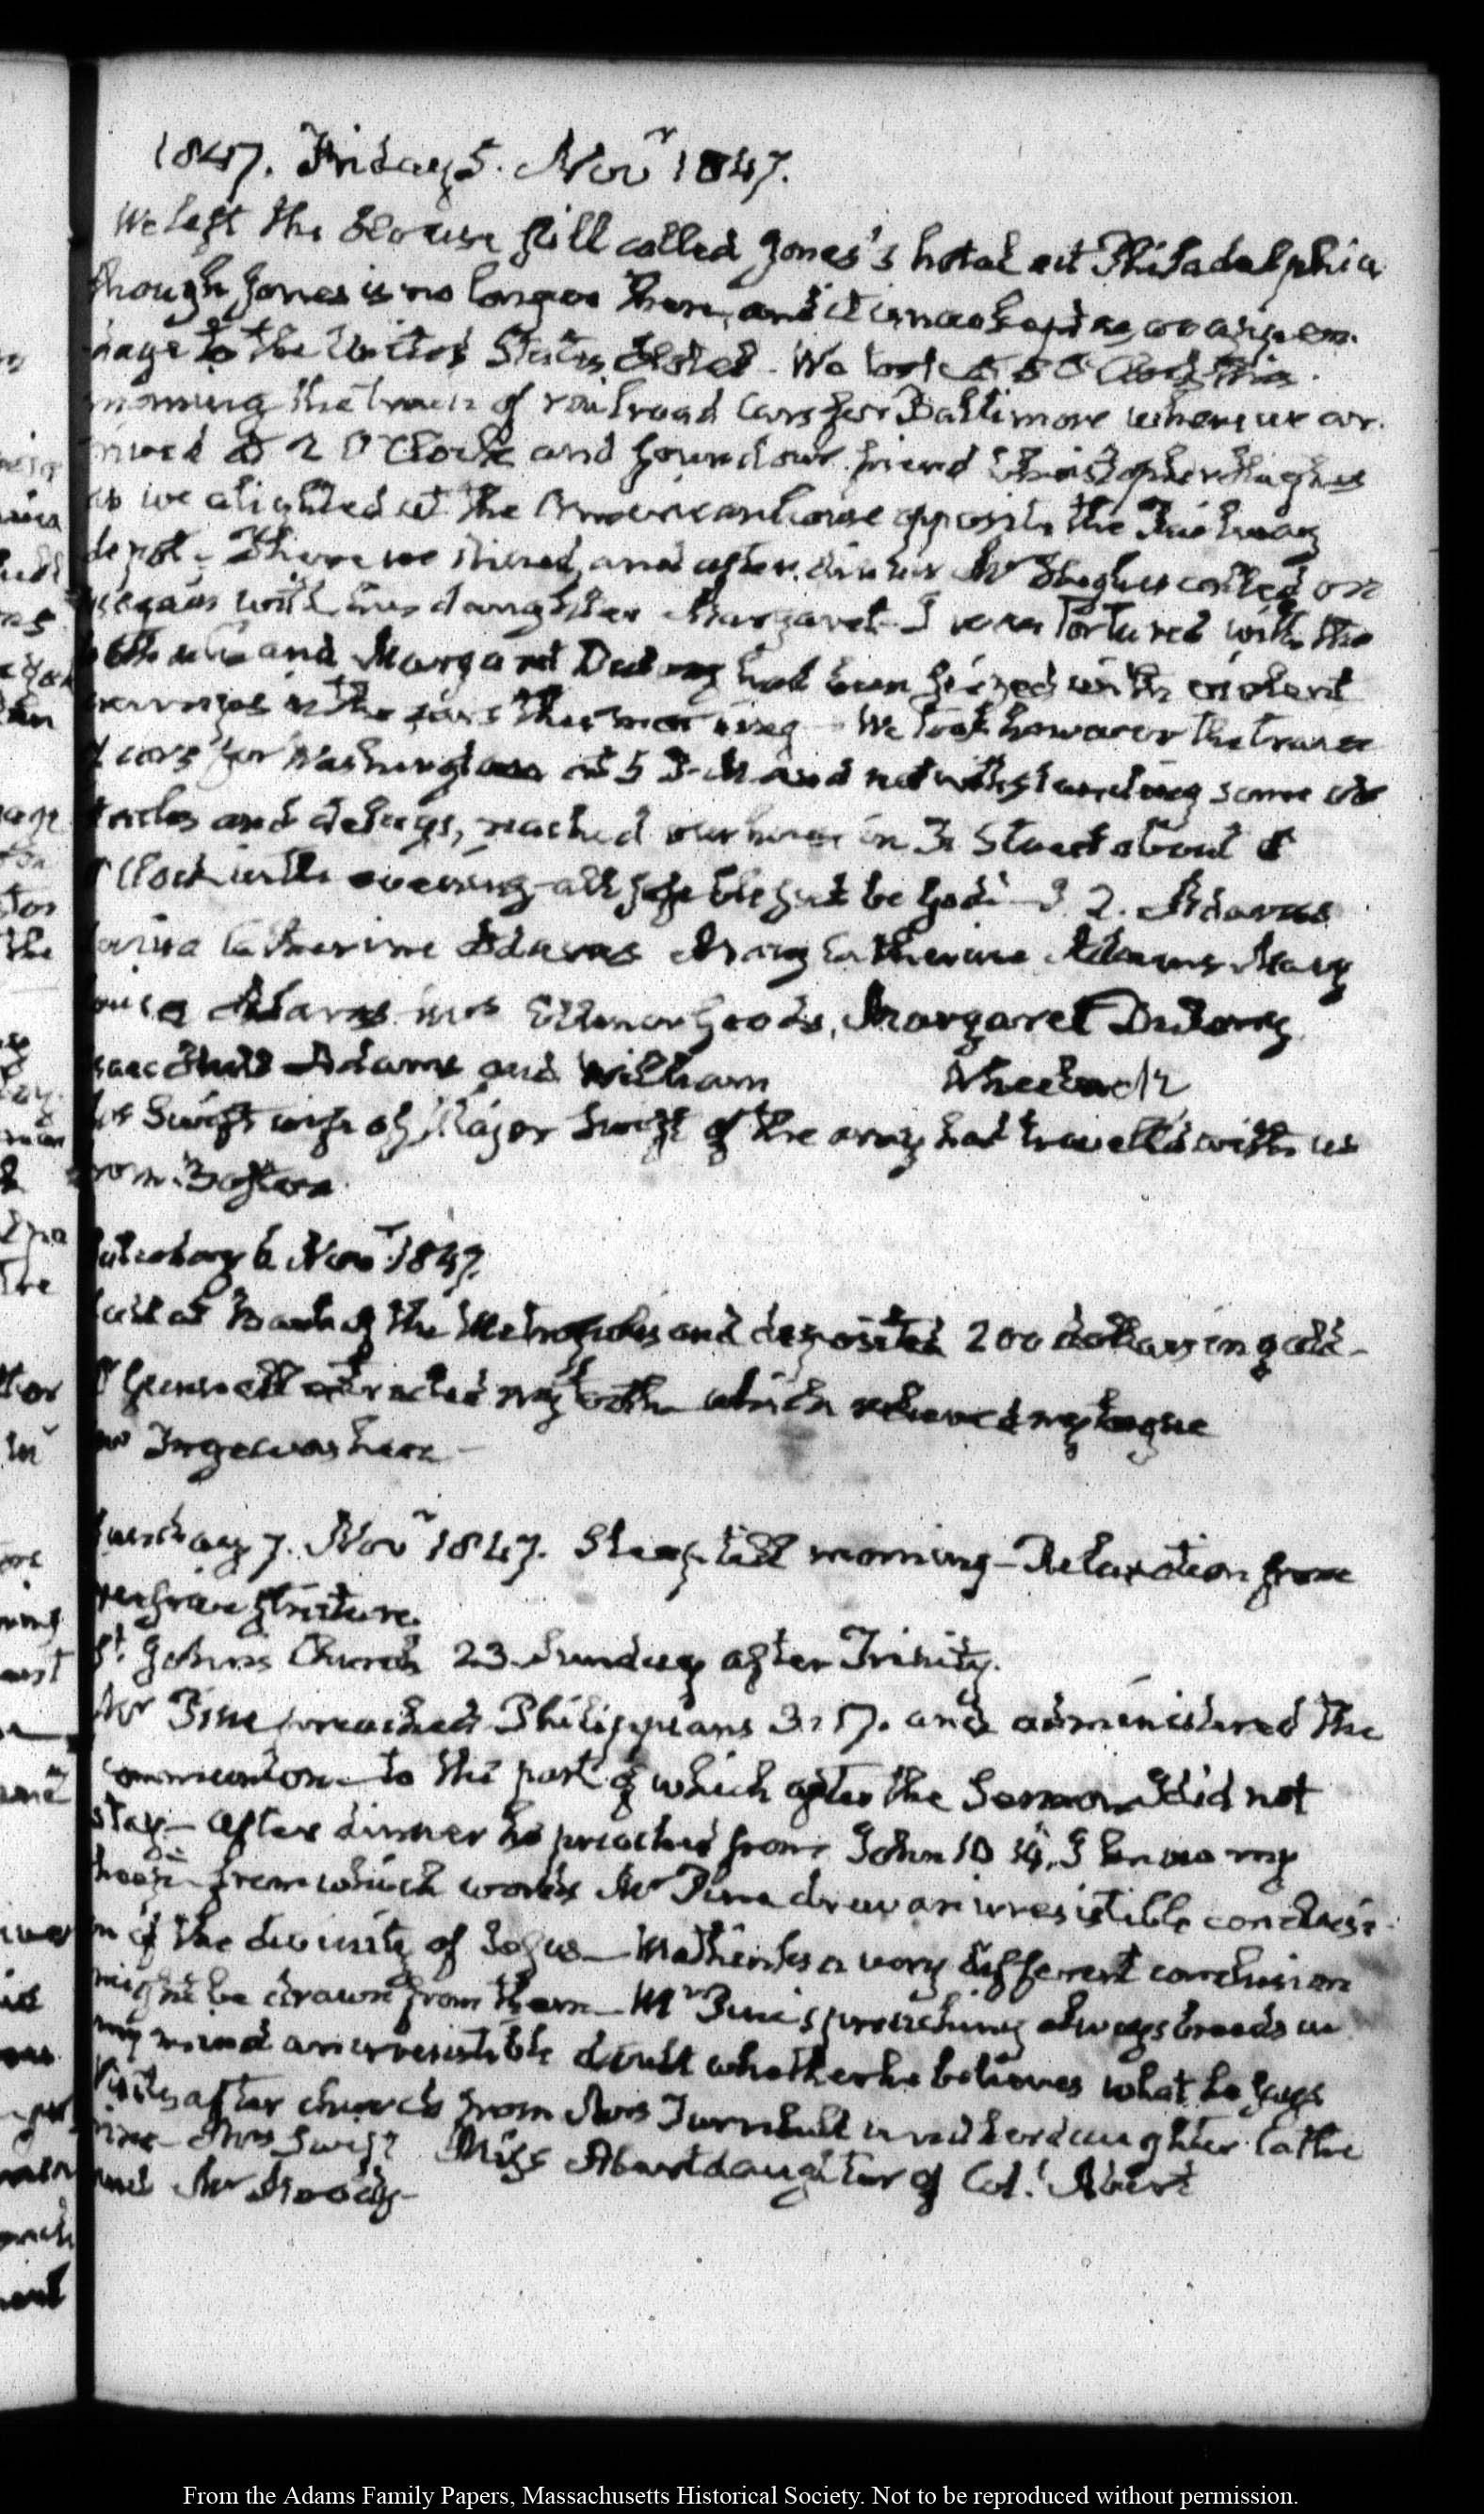 1847. Friday 5. Novr 1847.
We left the house still called Jones's hotel at Philadelphia
though Jones is no longer there, and it is now kept as an appen-
dage to the United States Hotel. We took at 8 O'Clock this
morning the train of railroad cars for Baltimore where we ar-
rived at 2 O'Clock and found our friend Christopher Hughes
as we alighted at the American house opposite the Railway
depot. There we dined, and after dinner Mr Hughes called on
us again with his daughter Margaret. I was tortured with the
tooth ache and Margaret Dulany had been seized with violent
in the cars this morning. We took however the train
of cars for Washington at 5 P.M and notwithstanding some obs
tacles and delays, reached our house in F. Street about 8
O'Clock in the evening all safe blessed be God. J. Q. Adams
Louisa Catherine Adams Mary Catherine Adams Mary
Louisa Adams mrs Ellenor Goods, Margaret Dulany
Isaac Hull Adams and William Wheelock
Mrs Swift wife of Major Swift of the army had travelled with us
from Boston
Saturday 6 Novr 1847.
at Bank of the Metropolis and deposited 200 dollars in gold—
extracted my tooth which relieved my tongue
was here—
Sunday 7. Novr 1847. Sleep till morning—Relaxation from
stricture.
St. Johns Church 23. Sunday after Trinity.
Mr Pine preached Philippians 3:17. and administered the
communion to the part of which after the Sermon I did not
stay— after dinner he preached from John 10 14, I know my
sheep— from which words Mr Pine drew an irresistible conclusi-
on of the divinity of Jesus— Methinks a very different conclusion
might be drawn from them— Mr Pine's preaching always breeds in
my mind an irresistible doubt whether he believes what he says
Visits after church from Mrs Turnbull and her daughter Cathe
rine— Mrs Swift Miss Abert daughter of Col.l Abert
and Mr Moody—
From the Adams Family Papers, Massachusetts Historical Society. Not to be reproduced without permission.